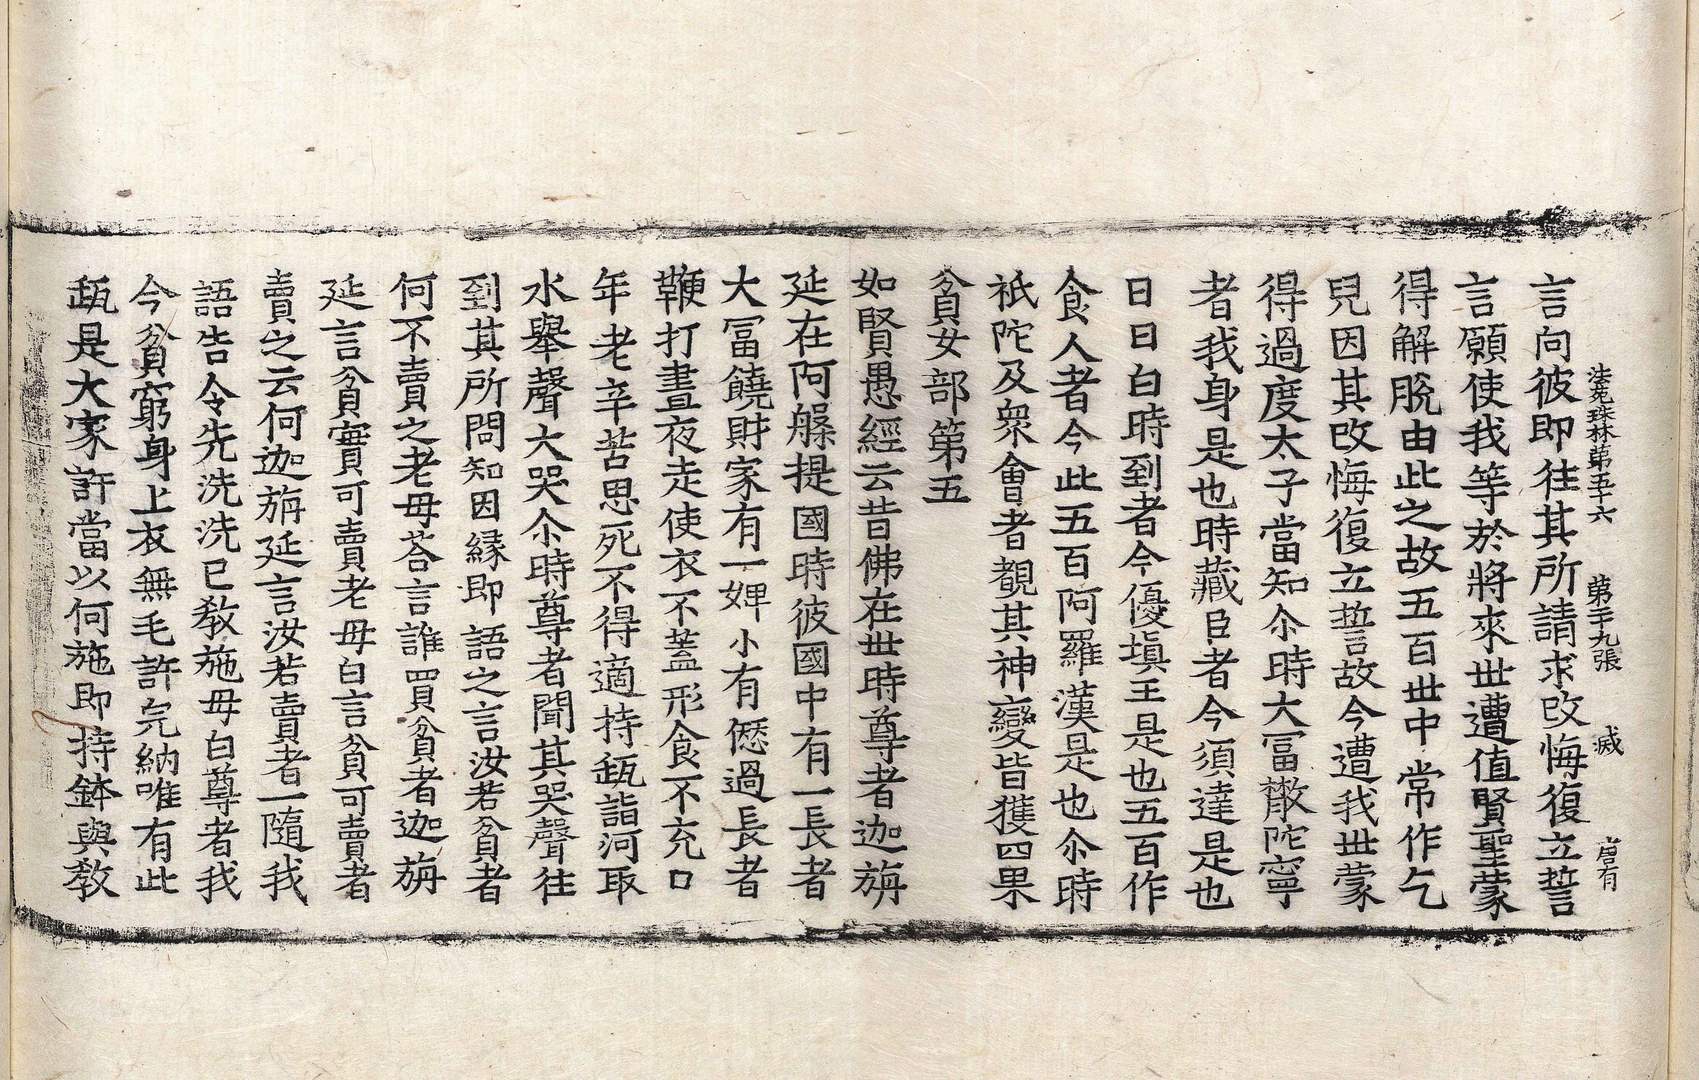 法苑珠林第五十六 第三十九張 㓕 唐有
言向彼即往其所請求改悔復立誓
言願使我等於將來世遭值賢聖蒙
得解脫由此之故五百世中常作乞
兒因其改悔復立誓故今遭我世蒙
得過度太子當知尒時大冨散陁寧
者我身是也時藏臣者今須達是也
日日白時到者今優塡王是也五百作
食人者今此五百阿羅漢是也尒時
祇陁及衆會者覩其神變皆獲四果
貧女部第五
如賢愚經云昔佛在世時尊者迦旃
延在阿槃提國時彼國中有一長者
大冨饒財家有一婢小有𠍴過長者
鞭打晝夜走使衣不蓋形食不充口
年老辛苦思死不得適持瓨詣河取
水舉聲大哭尒時尊者聞其哭聲往
到其所問知因緣即語之言汝若貧者
何不賣之老母荅言誰買貧者迦旃
延言貧實可賣老母白言貧可賣者
賣之云何迦旃延言汝若賣者一隨我
語告令先洗洗已教施母白尊者我
今貧窮身上衣無毛許完納唯有此
瓨是大家許當以何施即持鉢與教